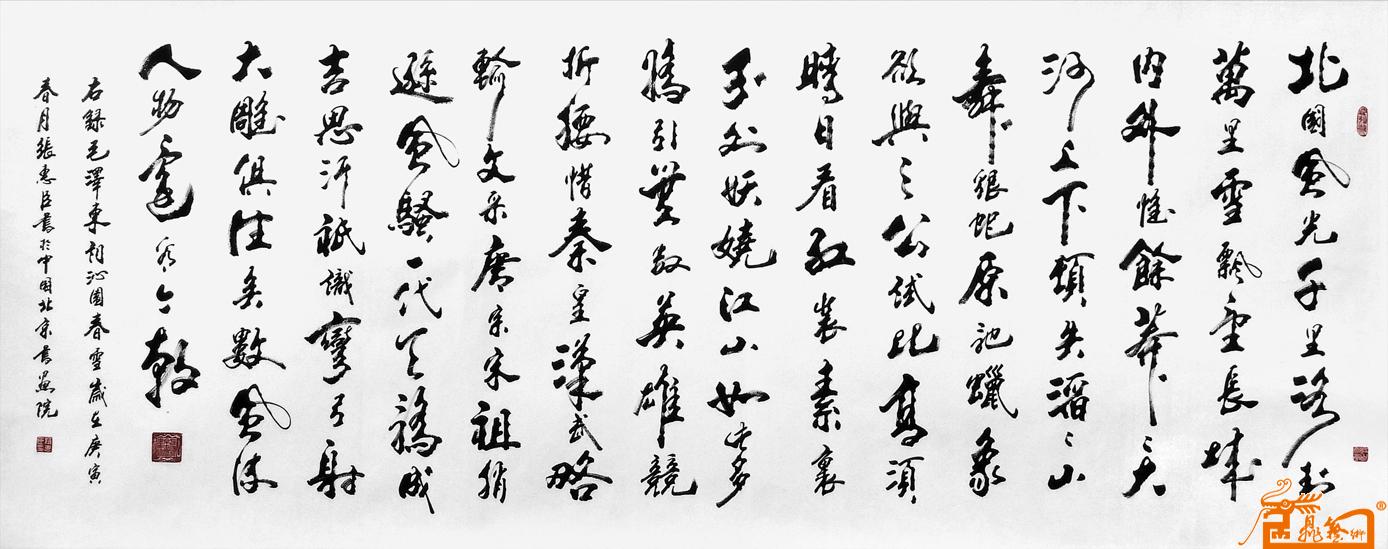 北國風光千里冰封
萬里雪飄望長城
内外惟餘莽々大
河上下頓失滔々山
舞銀蛇原馳蠟象
欲與天公試比高須
晴日看紅裝素裹
分外妖嬈江山如此多
嬌引無數英雄競
折腰惜秦皇漢武略
輸文采唐宗宋祖稍
遜風騷一代天驕成
吉思汗祇識彎弓射
大雕俱往矣數風流
人物還看今朝
右錄毛澤東詞沁園春雪歲在庚寅
春月張惠臣書於中国北京書畫院